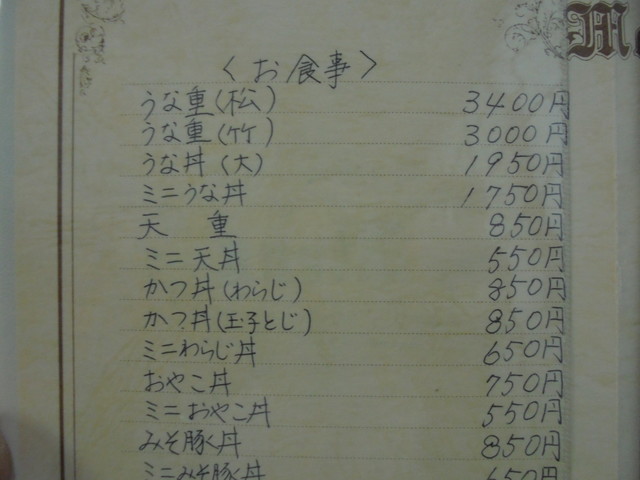 〈お食事〉
うな重(松) 3400円
うな重(竹) 3000円
うな丼(大) 1950円
ミニうな丼 1750円
天 重 850円
ミニ天丼 550円
かつ丼(わらじ) 850円
かつ丼(玉子とじ) 850円
ミニわらじ丼 650円
おやこ丼 750円
ミニおやこ丼 550円
みそ豚丼 850円
ミニみそ豚丼 650円